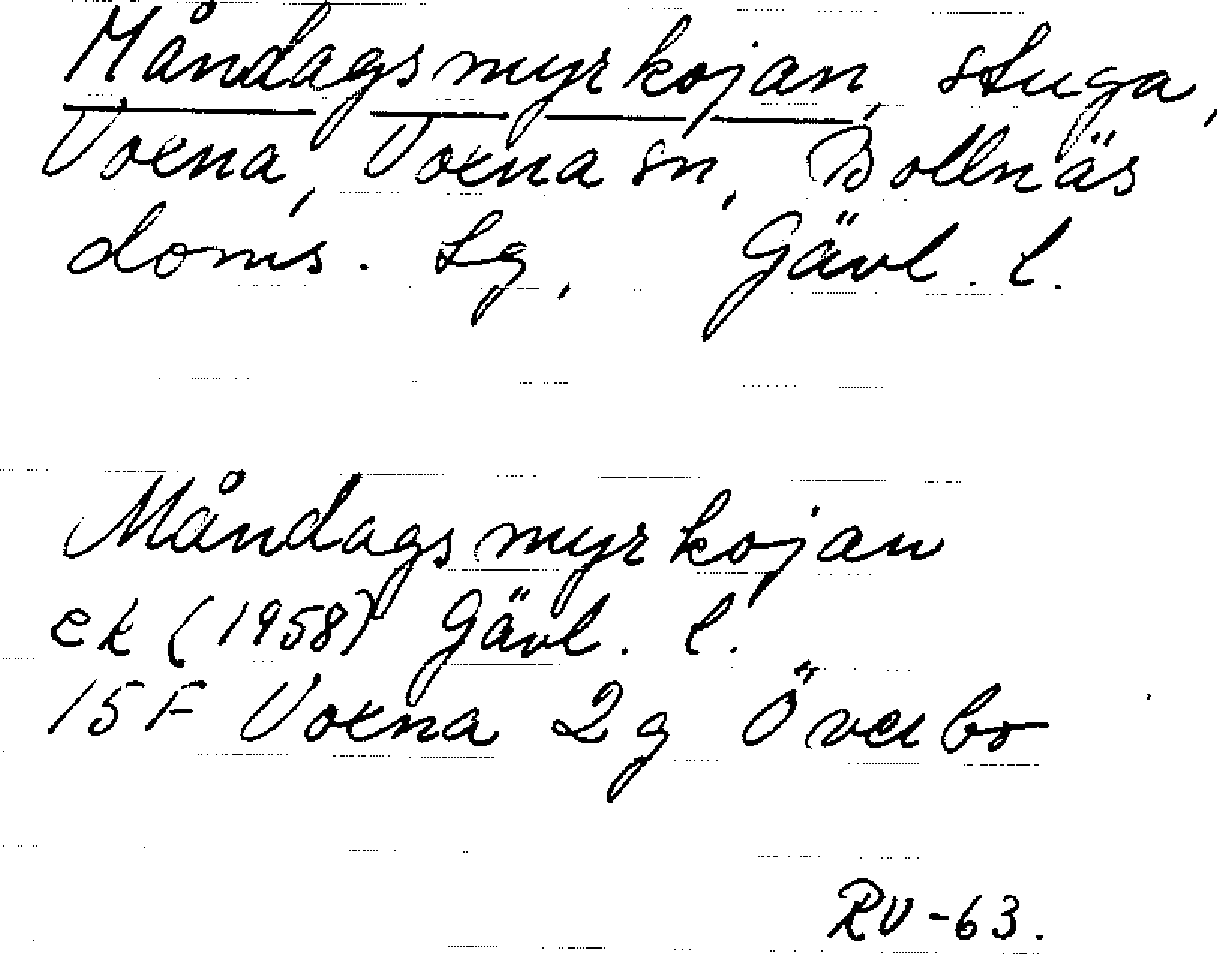 Måndagsmyrkojan, stuga,
Voxna, Voxna sn, Bollnäs
doms. sg, Gävl. l.
Måndagsmyrkojan
ek (1958) Gävl. l.
15F Voxna 2g Överbo
RV-63.